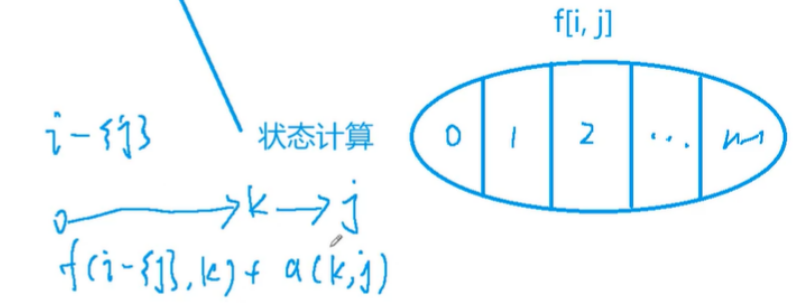 f[i, j]
i-{j}
状态计算
0 1 2 ... n-1
0 → k → j
f(i-{j}, k) + a(k, j)